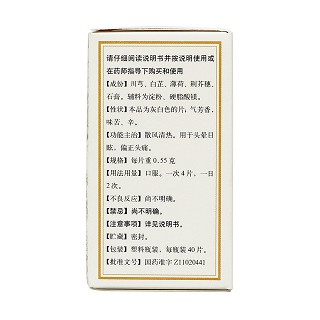 请仔细阅读说明书并按说明使用或
在药师指导下购买和使用
【成份】川芎、白芷、薄荷、荆芥穗、
石膏。辅料为淀粉、硬脂酸镁。
【性状】本品为灰白色的片；气芳香，
味苦、辛。
【功能主治】散风清热。用于头晕目
眩，偏正头痛。
【规格】每片重0.55克
【用法用量】口服。一次4片，一日
2次。
【不良反应】尚不明确。
【禁忌】尚不明确。
【注意事项】详见说明书。
【贮藏】密封。
【包装】塑料瓶装，每瓶装40片。
【批准文号】国药准字Z11020441